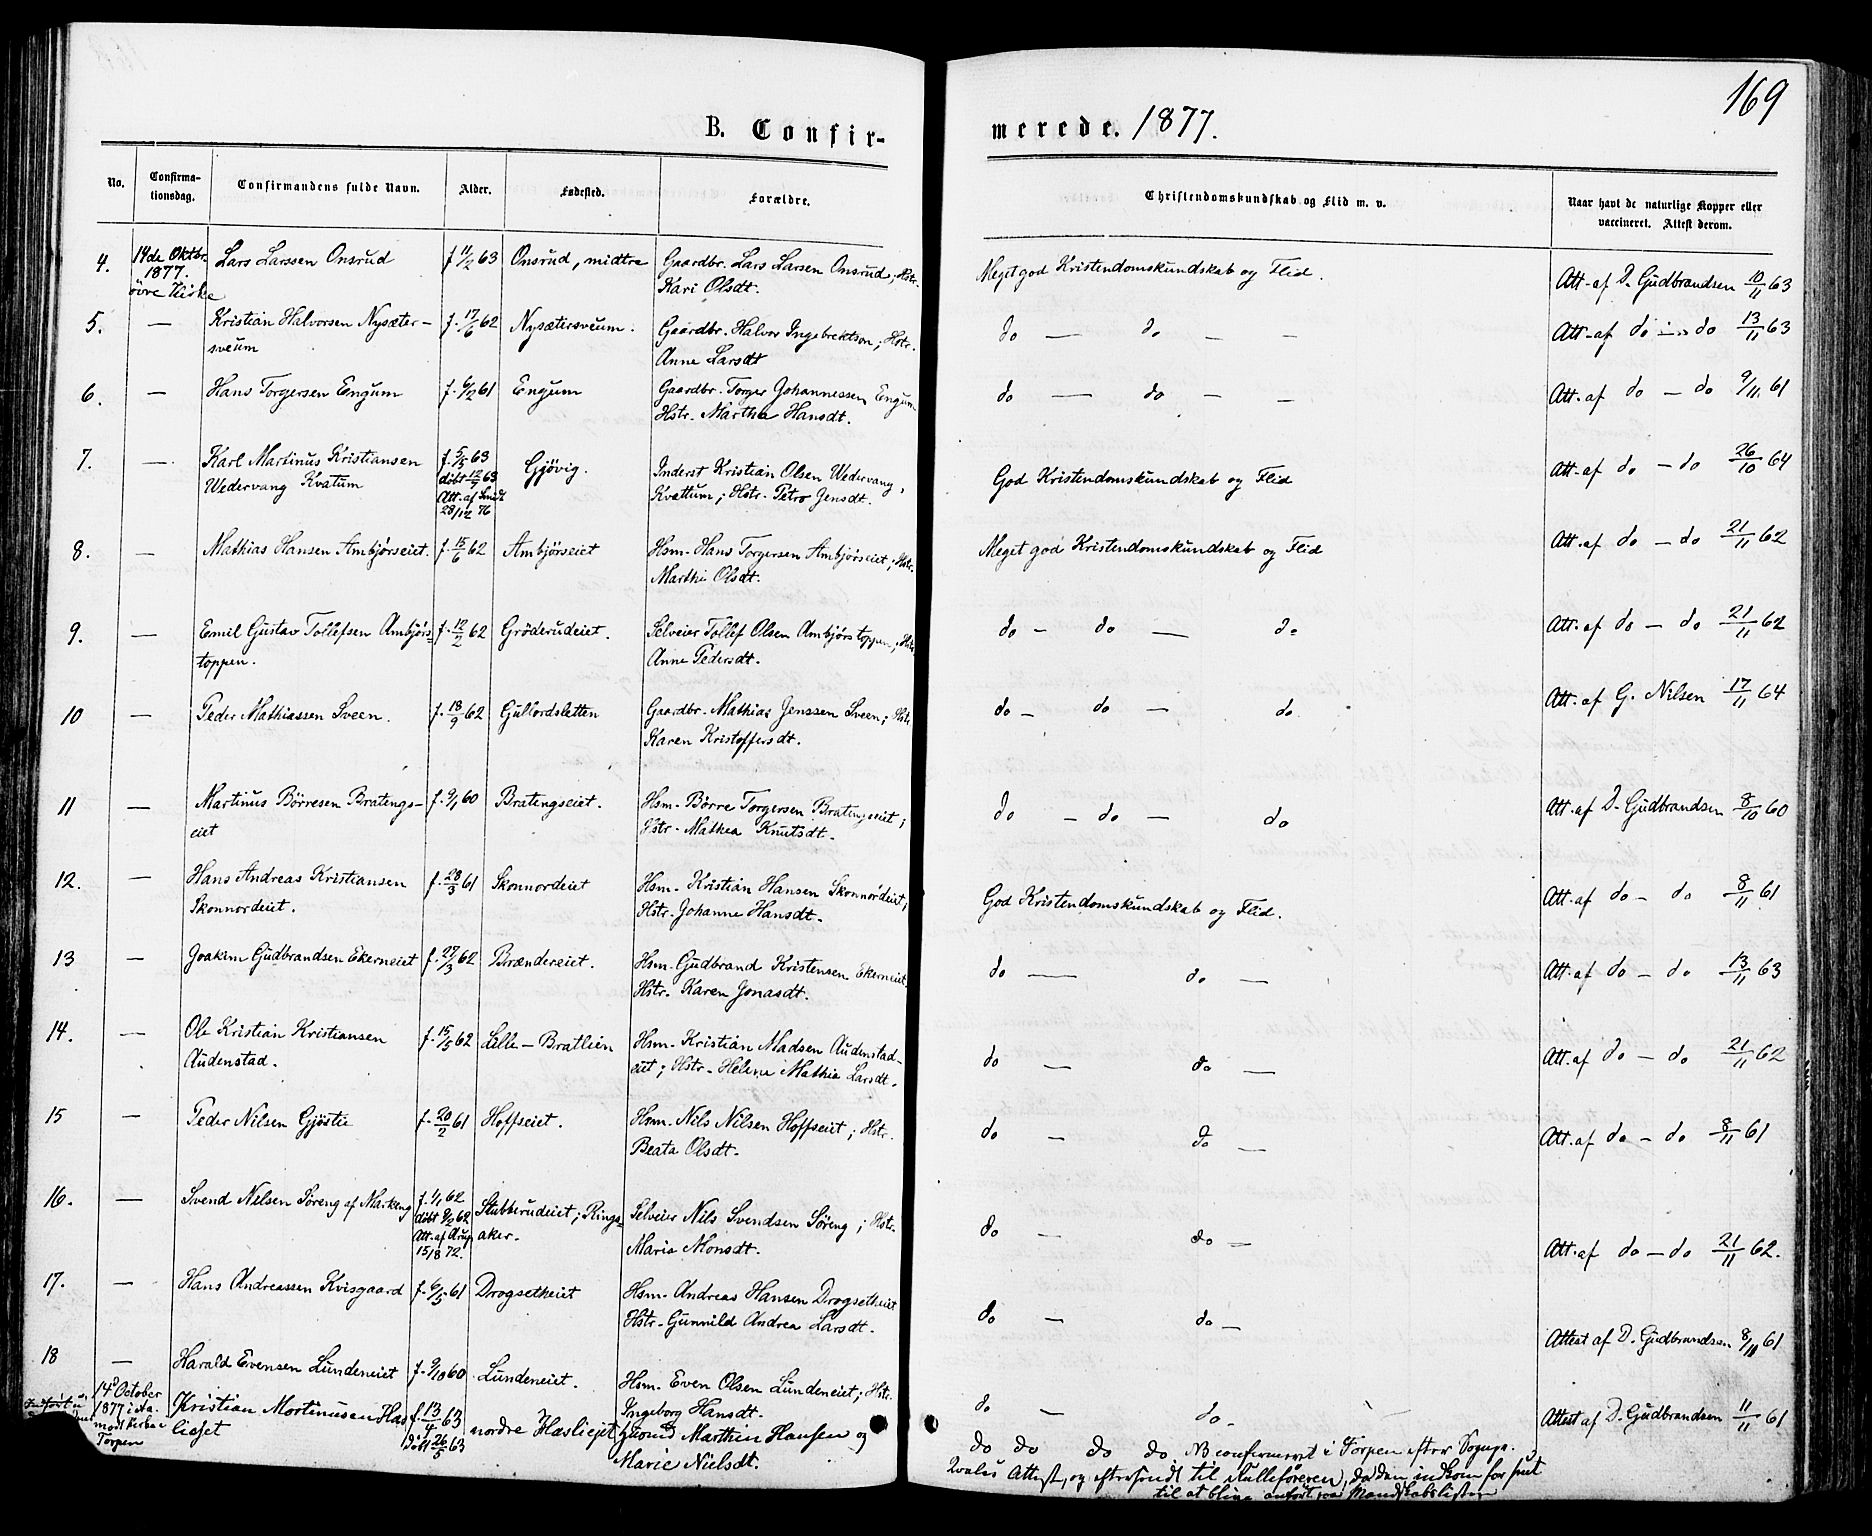 169
B. Confir-
merede. 1877.
No.
Confirma-
tionsdag.
Confirmandens fulde Navn.
Alder.
Fødested.
Forældre.
Christendomskundskab og Flid m. v.
Naar havt de naturlige Kopper eller
vaccineret. Attest derom.
4. 14de Oktbr. Lars Larssen Onsrud f 11/2 63 Onsrud, midtre Gaardbr. Lars Larsen Onsrud; Hstr. Meget god Kristendomskundskab og Flid. Att. af D. Gudbrandsen 10/11 63
1877. Kari Olsdt.
övre
5. — Kristian Halvorsen Nysæter- f. 17/6 62 Nysætersveum. Gaardbr. Halvor Ingebrektsen; Hstr. do — do — — Att. af do — do 13/11 63
sveum Anne Larsdt
6. — Hans Torgersen Engum f. 6/2 61 Engum Gaardbr. Torger Johannessen Engum do — do — — Att. af do — do 9/11 61
Hstr. Martha Hansdt.
7. — Karl Martinus Kristiansen f. 5/3 63 Gjövig. Inderst Kristian Olsen Wedervang, God Kristendomskundskab og Flid Att. af do — do 26/10 64
Wedervang Kvatum döbt 12/7 63 Kvattum; Hstr. Petro Jensdt.
Att. af Smidt
28/12 76
8. — Mathias Hansen Ambjörseiet. f. 15/6 62 Ambjörseiet Hsm. Hans Torgersen Ambjörseiet; Hstr. Meget god Kristendomskundskab og Flid Att. af do — do 21/11 62
Marthi Olsdt.
9. — Emil Gustav Tollefsen Ambjörs- f. 12/2 62 Gröderudeiet. Selveier Tollef Olsen Ambjörstoppen; Hstr. do — do — do Att. af do — do 21/11 62
toppen. Anne Pedersdt.
10 — Peder Mathiassen Sveen. f. 18/9 62 Gullordsletten Gaardbr. Mathias Jenssen Sveen; Hstr. do — do — do Att. af G. Nilsen 17/11 64
Karen Kristoffersdt.
11 — Martinus Börresen Bratengs- f. 9/1 60 Bratengseiet. Hsm. Börre Torgersen Bratengseiet; do — do — do Att. af D. Gudbrandsen 8/10 60
eiet Hstr. Mathea Knutsdt.
12. — Hans Andreas Kristiansen f. 28/3 61 Skonnordeiet Hsm. Kristian Hansen Skonnordeiet; God Kristendomskundskab og Flid. Att. af do — do 8/11 61
Skonnordeiet. Hstr. Johanne Hansdt.
13 — Joakim Gudbrandsen Ekerneiet f. 27/3 62 Brændereiet. Hsm. Gudbrand Kristensen Ekerneiet do — do — Att. af do — do 13/11 63
Hstr. Karen Jonasdt.
14. — Ole Kristian Kristiansen f. 15/5 62 Lille-Bratlien Hsm. Kristian Madsen Audenstad- do — do — Att. af do — do 21/11 62
Audenstad. eiet; Hstr. Helene Mathia Larsdt.
15 — Peder Nilsen Gjöstie f. 20/2 61 Hoffseiet. Hsm. Nils Nilsen Hoffseiet; Hstr. do — do — Att. af do — do 8/11 61
Beata Olsdt.
16. — Svend Nilsen Söreng af Markeng f. 1/1 62 Stubberudeiet; Rings- Selveier Nils Svendsen Söreng; Hstr. do — do — Att. af do — do 21/11 62.
döbt 9/2 62 aker. Maria Monsdt.
Att. af Arup
15/8 72.
17. — Hans Andreassen Kvisgaard f. 6/5 61 Drogsetheiet Hsm. Andreas Hansen Drogsetheiet do — do — Attest af D. Gudbrandsen 8/11 61
Hstr. Gunnild Andrea Larsdt.
18 — Harald Evensen Lundeneiet f. 9/10 60 Lundeneiet. Hsm. Even Olsen Lundeneiet; Hstr. do — do — Attest af D. Gudbrandsen 11/11 61
Ingeborg Hansdt.
14 October Kristian Mortinusen Has f. 13/4 63 nordre Haslieiet Marthin Hansen og do do do do. NB confirmeret i Torpen efter Sogneps.
1877 i Aa- lieiet Döbt 26/5 63 Marie Nielsdt.
mods Kirke i
Torpen
Attest, og eftersendt til Rulleföreren, da den indkom for sent
til at blive anfört paa Mandskabslisten